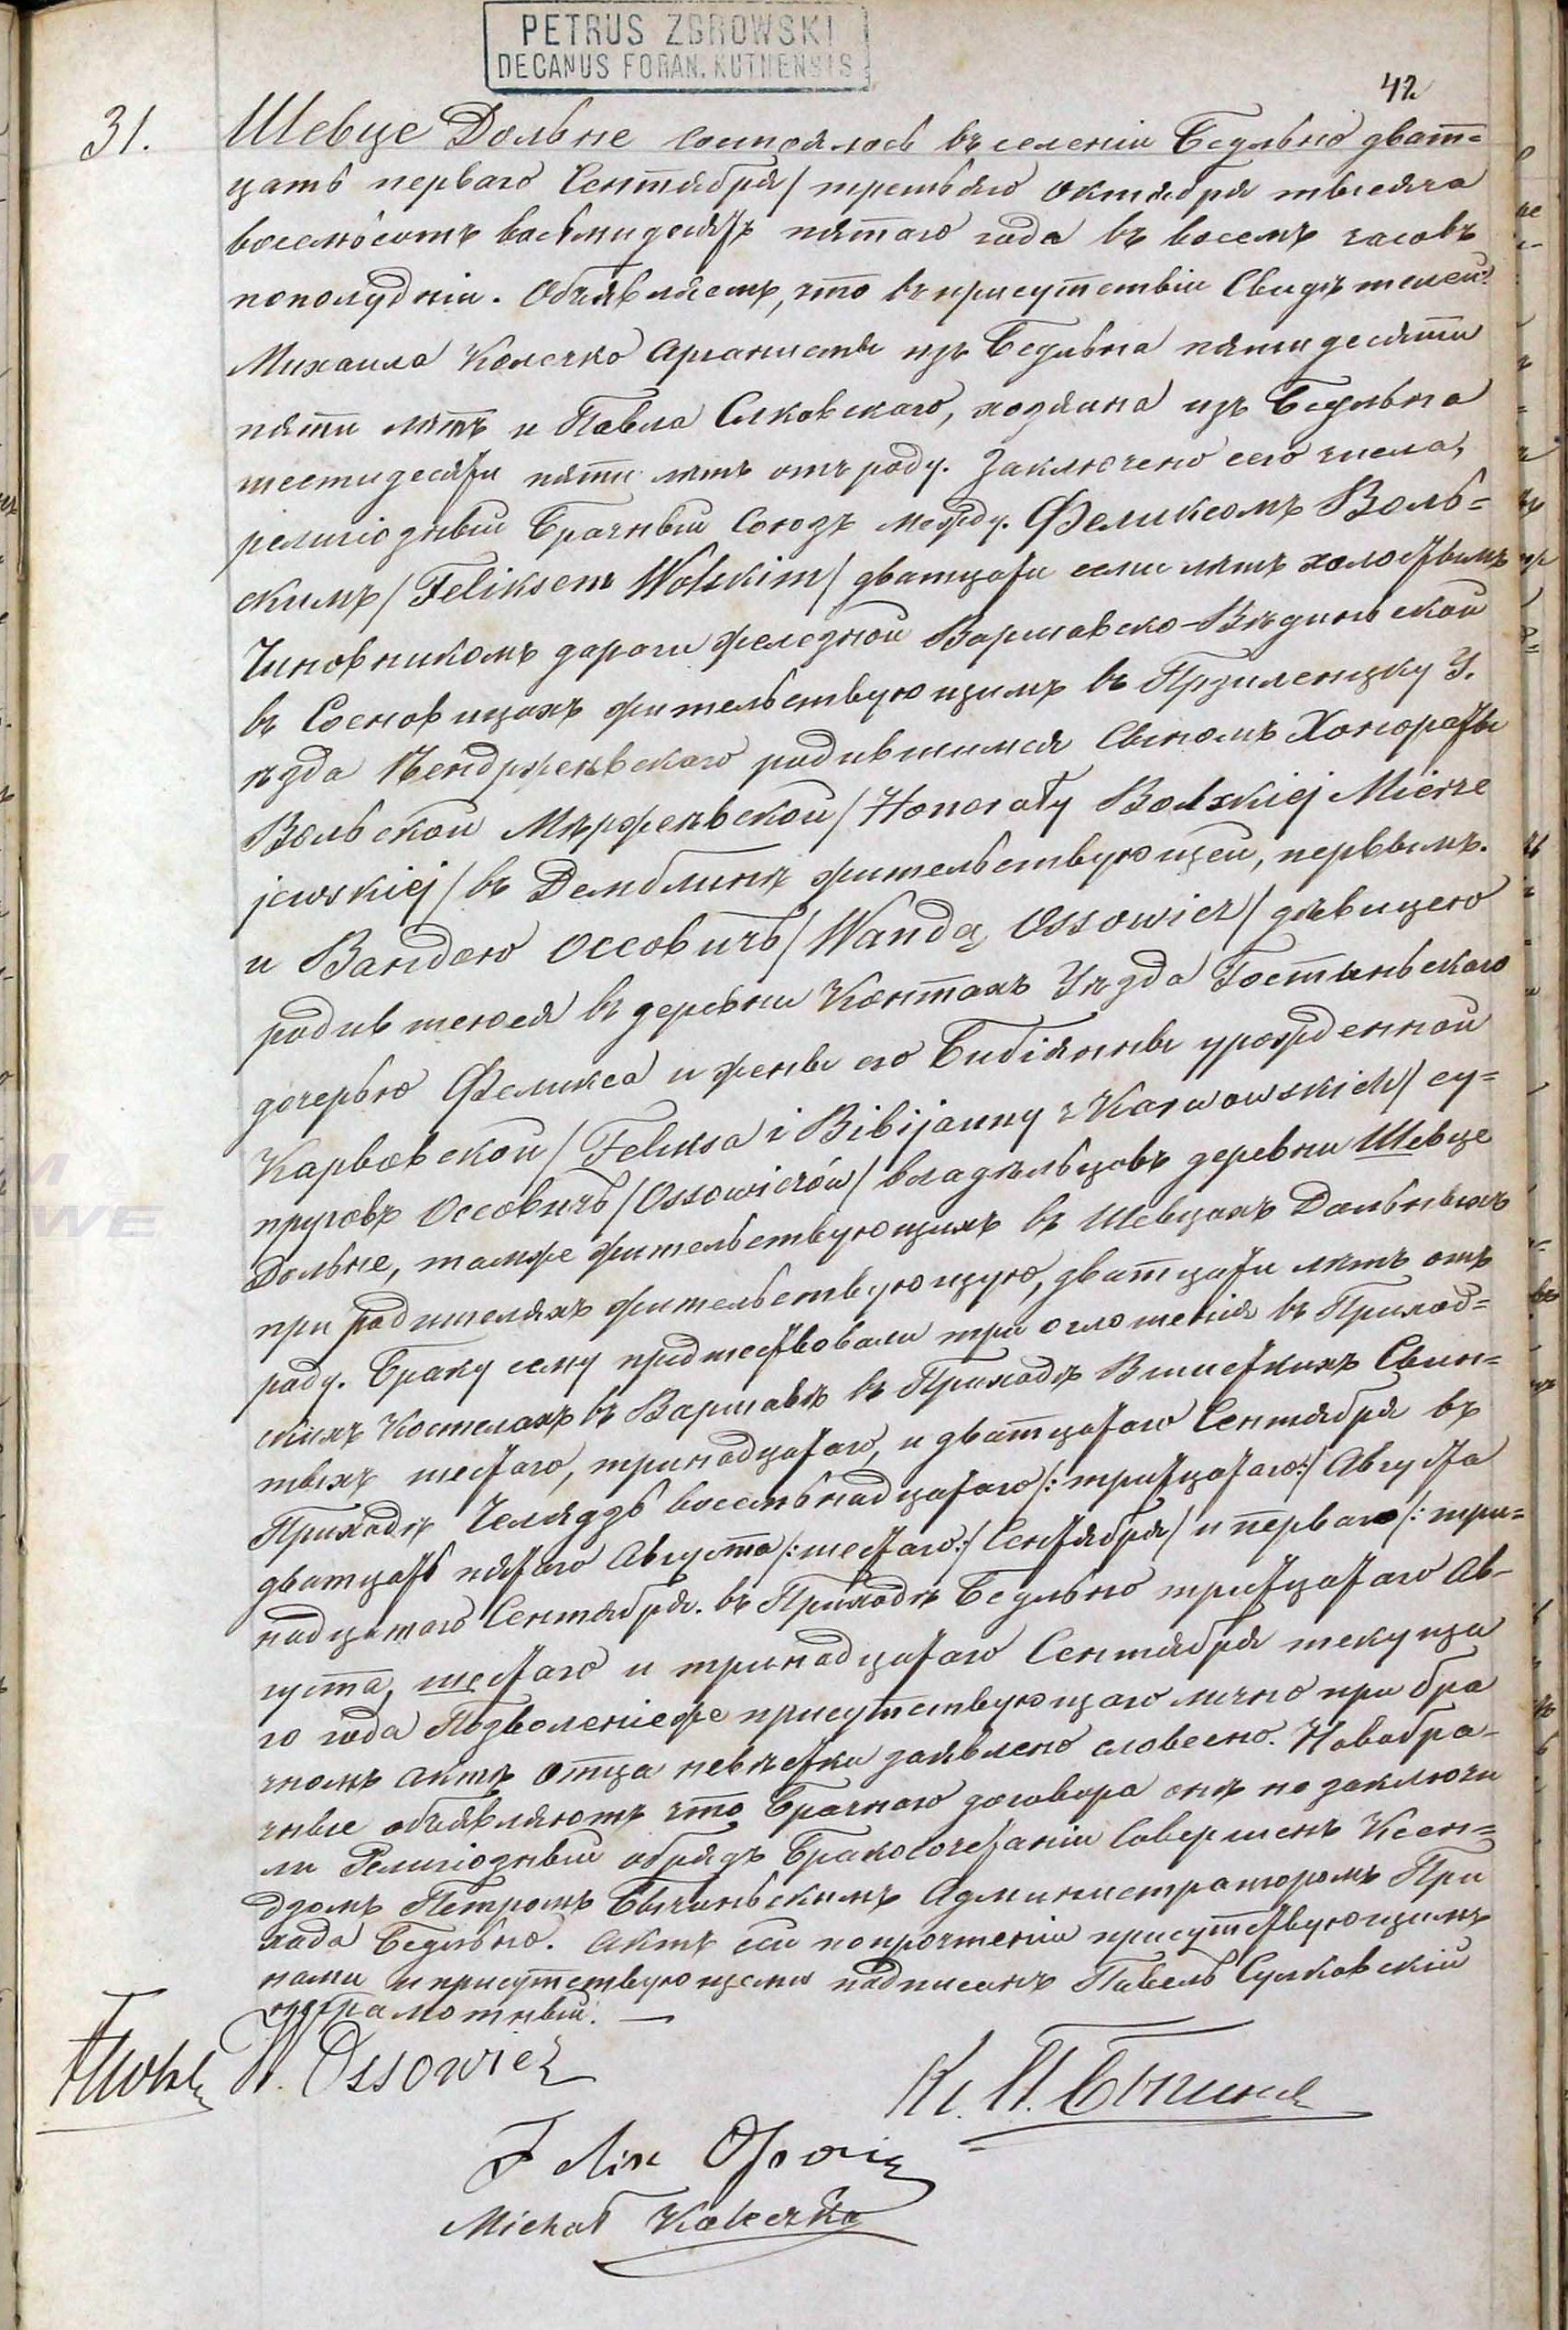 PETRUS ZBROWSKI
DECANUS FORAN. KUTNENSIS
42
31.
Шевце Дольне состоялось въ селенiи Бедльно дват=
цать перваго Сентября/третьяго Октября тысяча
восемьсотъ восьмидесятъ пятаго года въ восемъ часовъ
пополуднiи. Объявляемъ, что въ присутствiи Свидѣтелей:
Михаила Колечко Арганисты изъ Бедльна пятидесяти
пяти лѣтъ и Павла Слковскаго, хозяина изъ Бедльна
шестидесяти пяти лѣтъ отъ роду. Заключено сего числа,
религiозный Брачный Союзъ между. Феликсомъ Воль=
скимъ/Feliksem Wolskim/дватцати семи лѣтъ холостымъ
Чиновникомъ дороги железной Варшавско-Вѣдинской
въ Сосновицахъ жительствующимъ въ Прзиленцку У.
ѣзда Іендржеевскаго родившимся Сыномъ Хонораты
Вольской Мѣржеѣвской/Honoraty Wolskiej Mierze
jewskiej/въ Демблинѣ жительствующей, первымъ.
и Вандею Оссовичъ/Wandą Ossowicz/дѣвицею
родившеюся въ деревни Контахъ Уѣзда Гостынскаго
дочерью Феликса и жены его Бибiянны урожденной
Карвовской/Feliksa i Bibijanny z Karwowskich/су=
пруговъ Оссовичъ/Ossowiczów/владѣльцовъ деревни Шевце
Дольне, тамже жительствующихъ въ Шевцахъ Дольныхъ
при родителяхъ жительствующую, дватцати лѣтъ отъ
роду. Браку сему предшествовали три оглошенiя въ Приход=
скихъ Костелахъ въ Варшавѣ въ Приходѣ Вшисткихъ Свин=
тыхъ шестаго, тринадцатаго, и дватцатаго Сентября въ
Приходѣ Челядзь восемьнадцатаго/:тритцатаго:/Августа
дватцать пятаго Августа/:шестаго:/Сентября/и перваго/:три=
надцатаго Сентября. въ Приходѣ Бедльно тритцатаго Ав-
густа, шестаго и тринадцатаго Сентября текуща
го года Позволенiеже присутствующаго лично при бра
чномъ актѣ Отца невѣстки заявлено словесно. Новобра-
чные объявляютъ что Брачнаго договора онѣ не заключи
ли Религiозный обрядъ Бракосочетанiи Совершенъ Ксен=
дзомъ Петромъ Бычинскимъ Администраторомъ При
хода Бедльно. Актъ сей по прочтенiи присутствующимъ
нами и присутствующеми подписанъ Павелъ Сулковскiй
неграмотный. —
W. Ossowicz
Кс. П. Бычинск
Felix Ossowicz
Michał Koleczko